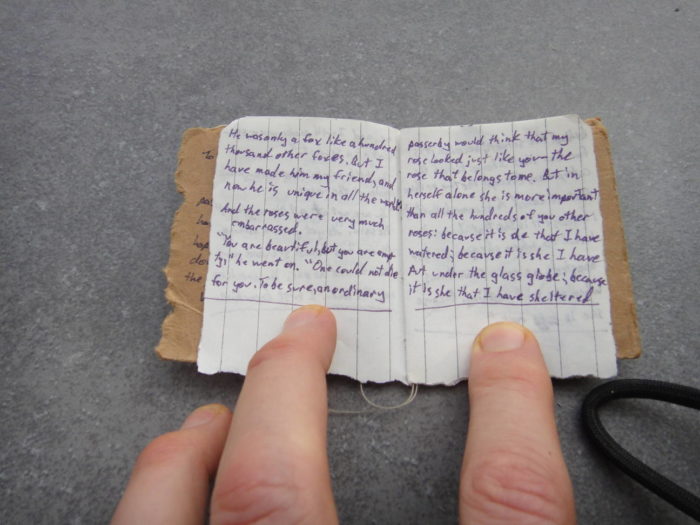 He was only a fox like a hundred
thousand other foxes. But I
have made him my friend, and
now he is unique in all the world.
And the roses were very much
embarrassed.
"You are beautiful, but you are emp
ty," he went on. "One could not die
for you. To be sure, an ordinary
passerby would think that my
rose looked just like you—the
rose that belongs to me. But in
herself alone she is more important
than all the hundreds of you other
roses: because it is she that I have
watered; because it is she I have
Put under the glass globe; because
it is she that I have sheltered
To
pas
ha
hap
do
the